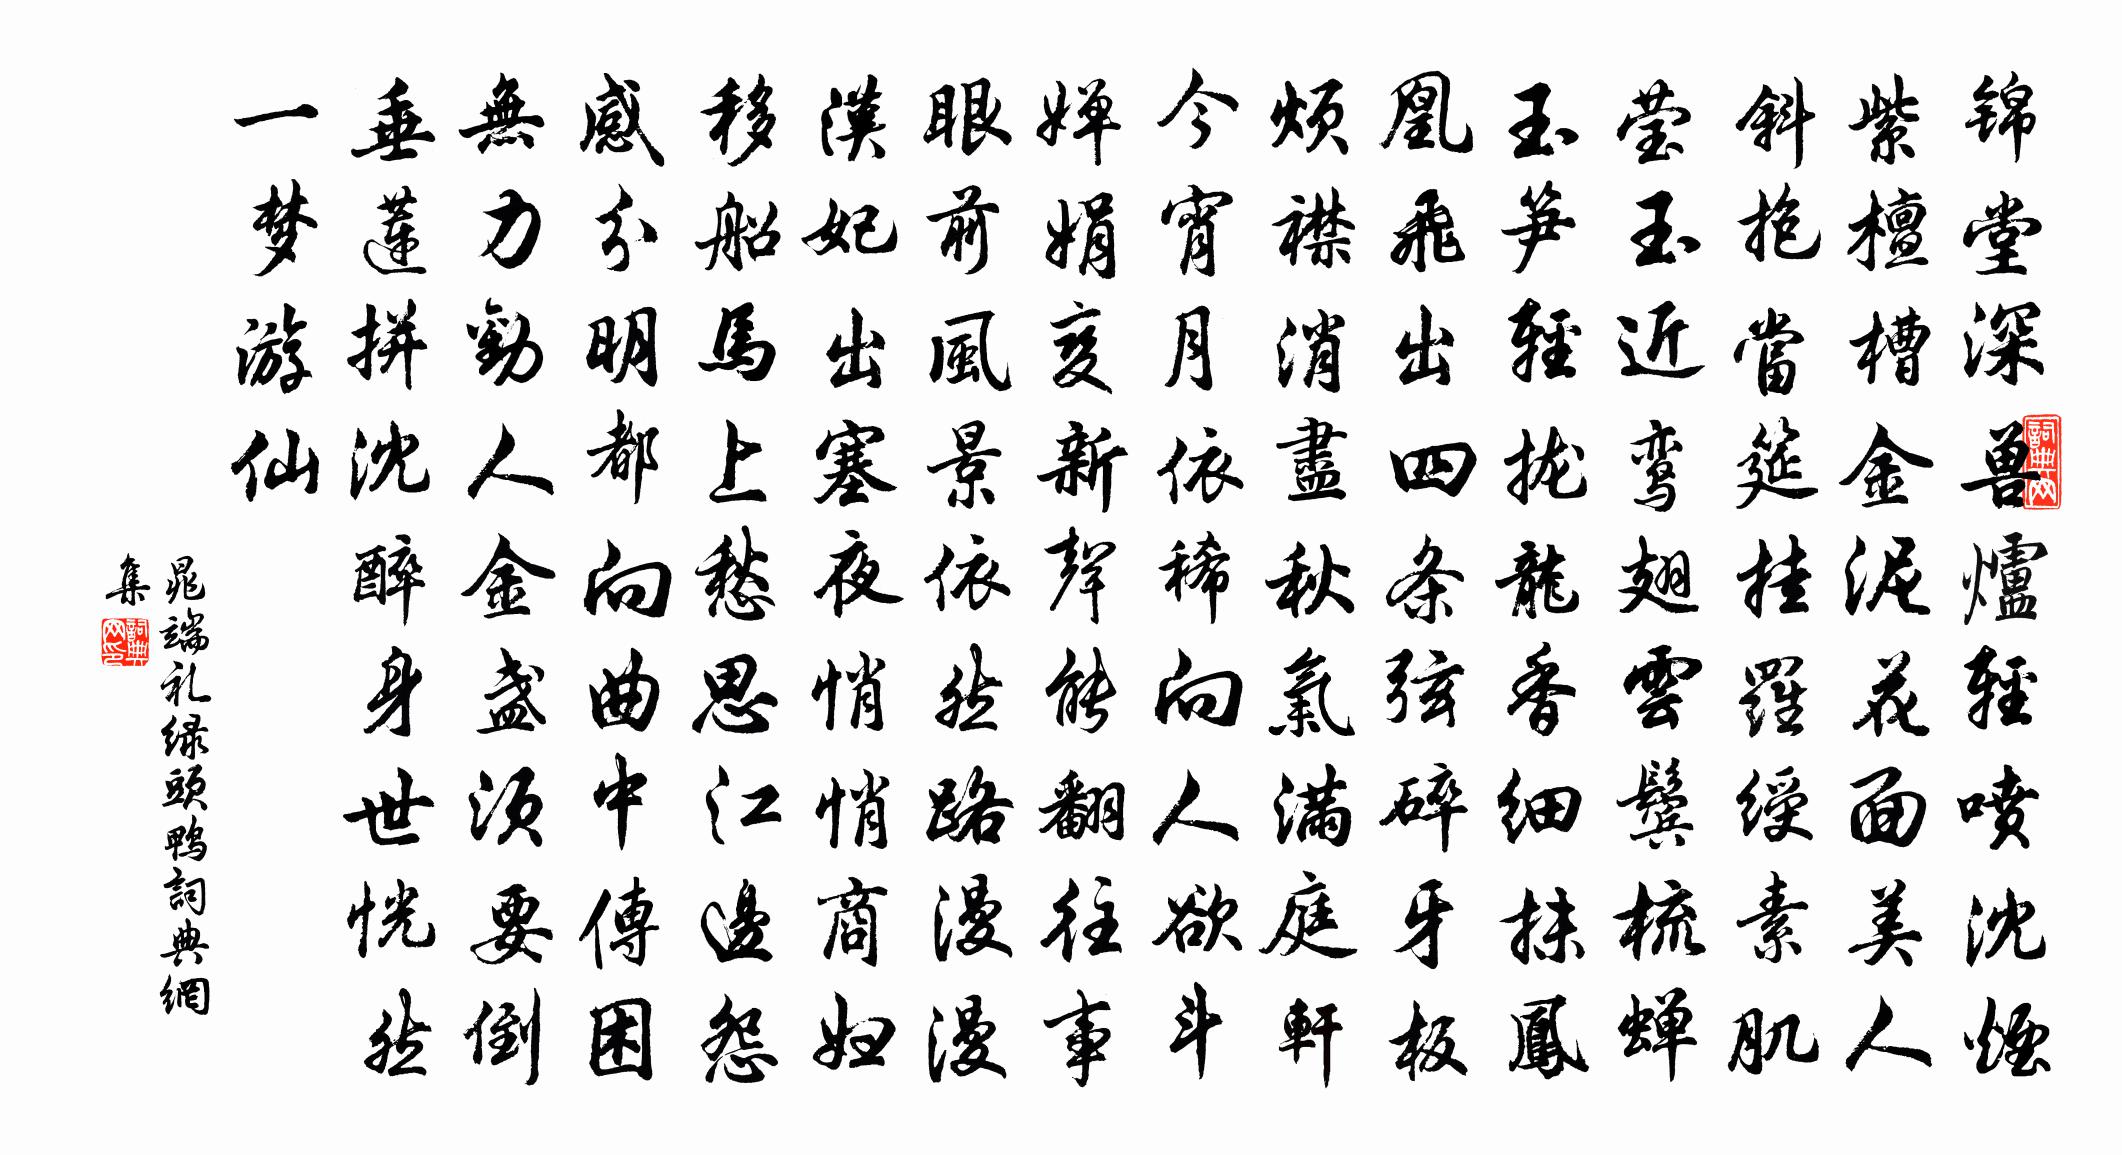 锦堂深兽爐輕喷沈煙
紫檀槽金泥花面美人
斜抱當筵挂羅绶素肌
莹玉近鸾翅雲鬓梳蝉
玉笋輕拢龍香细抹鳳
凰飛出四条弦碎牙板
烦襟消盡秋氣满庭軒
今宵月依稀向人欲斗
婵娟变新聲能翻往事
眼前風景依然路漫漫
漢妃出塞夜悄悄商妇
移船馬上愁思江邊怨
感分明都向曲中傳困
無力勸人金盏须要倒
垂蓮拼沈醉身世恍然
一梦游仙
晁端礼绿頭鸭詞典網
集
詞典网
詞典网印